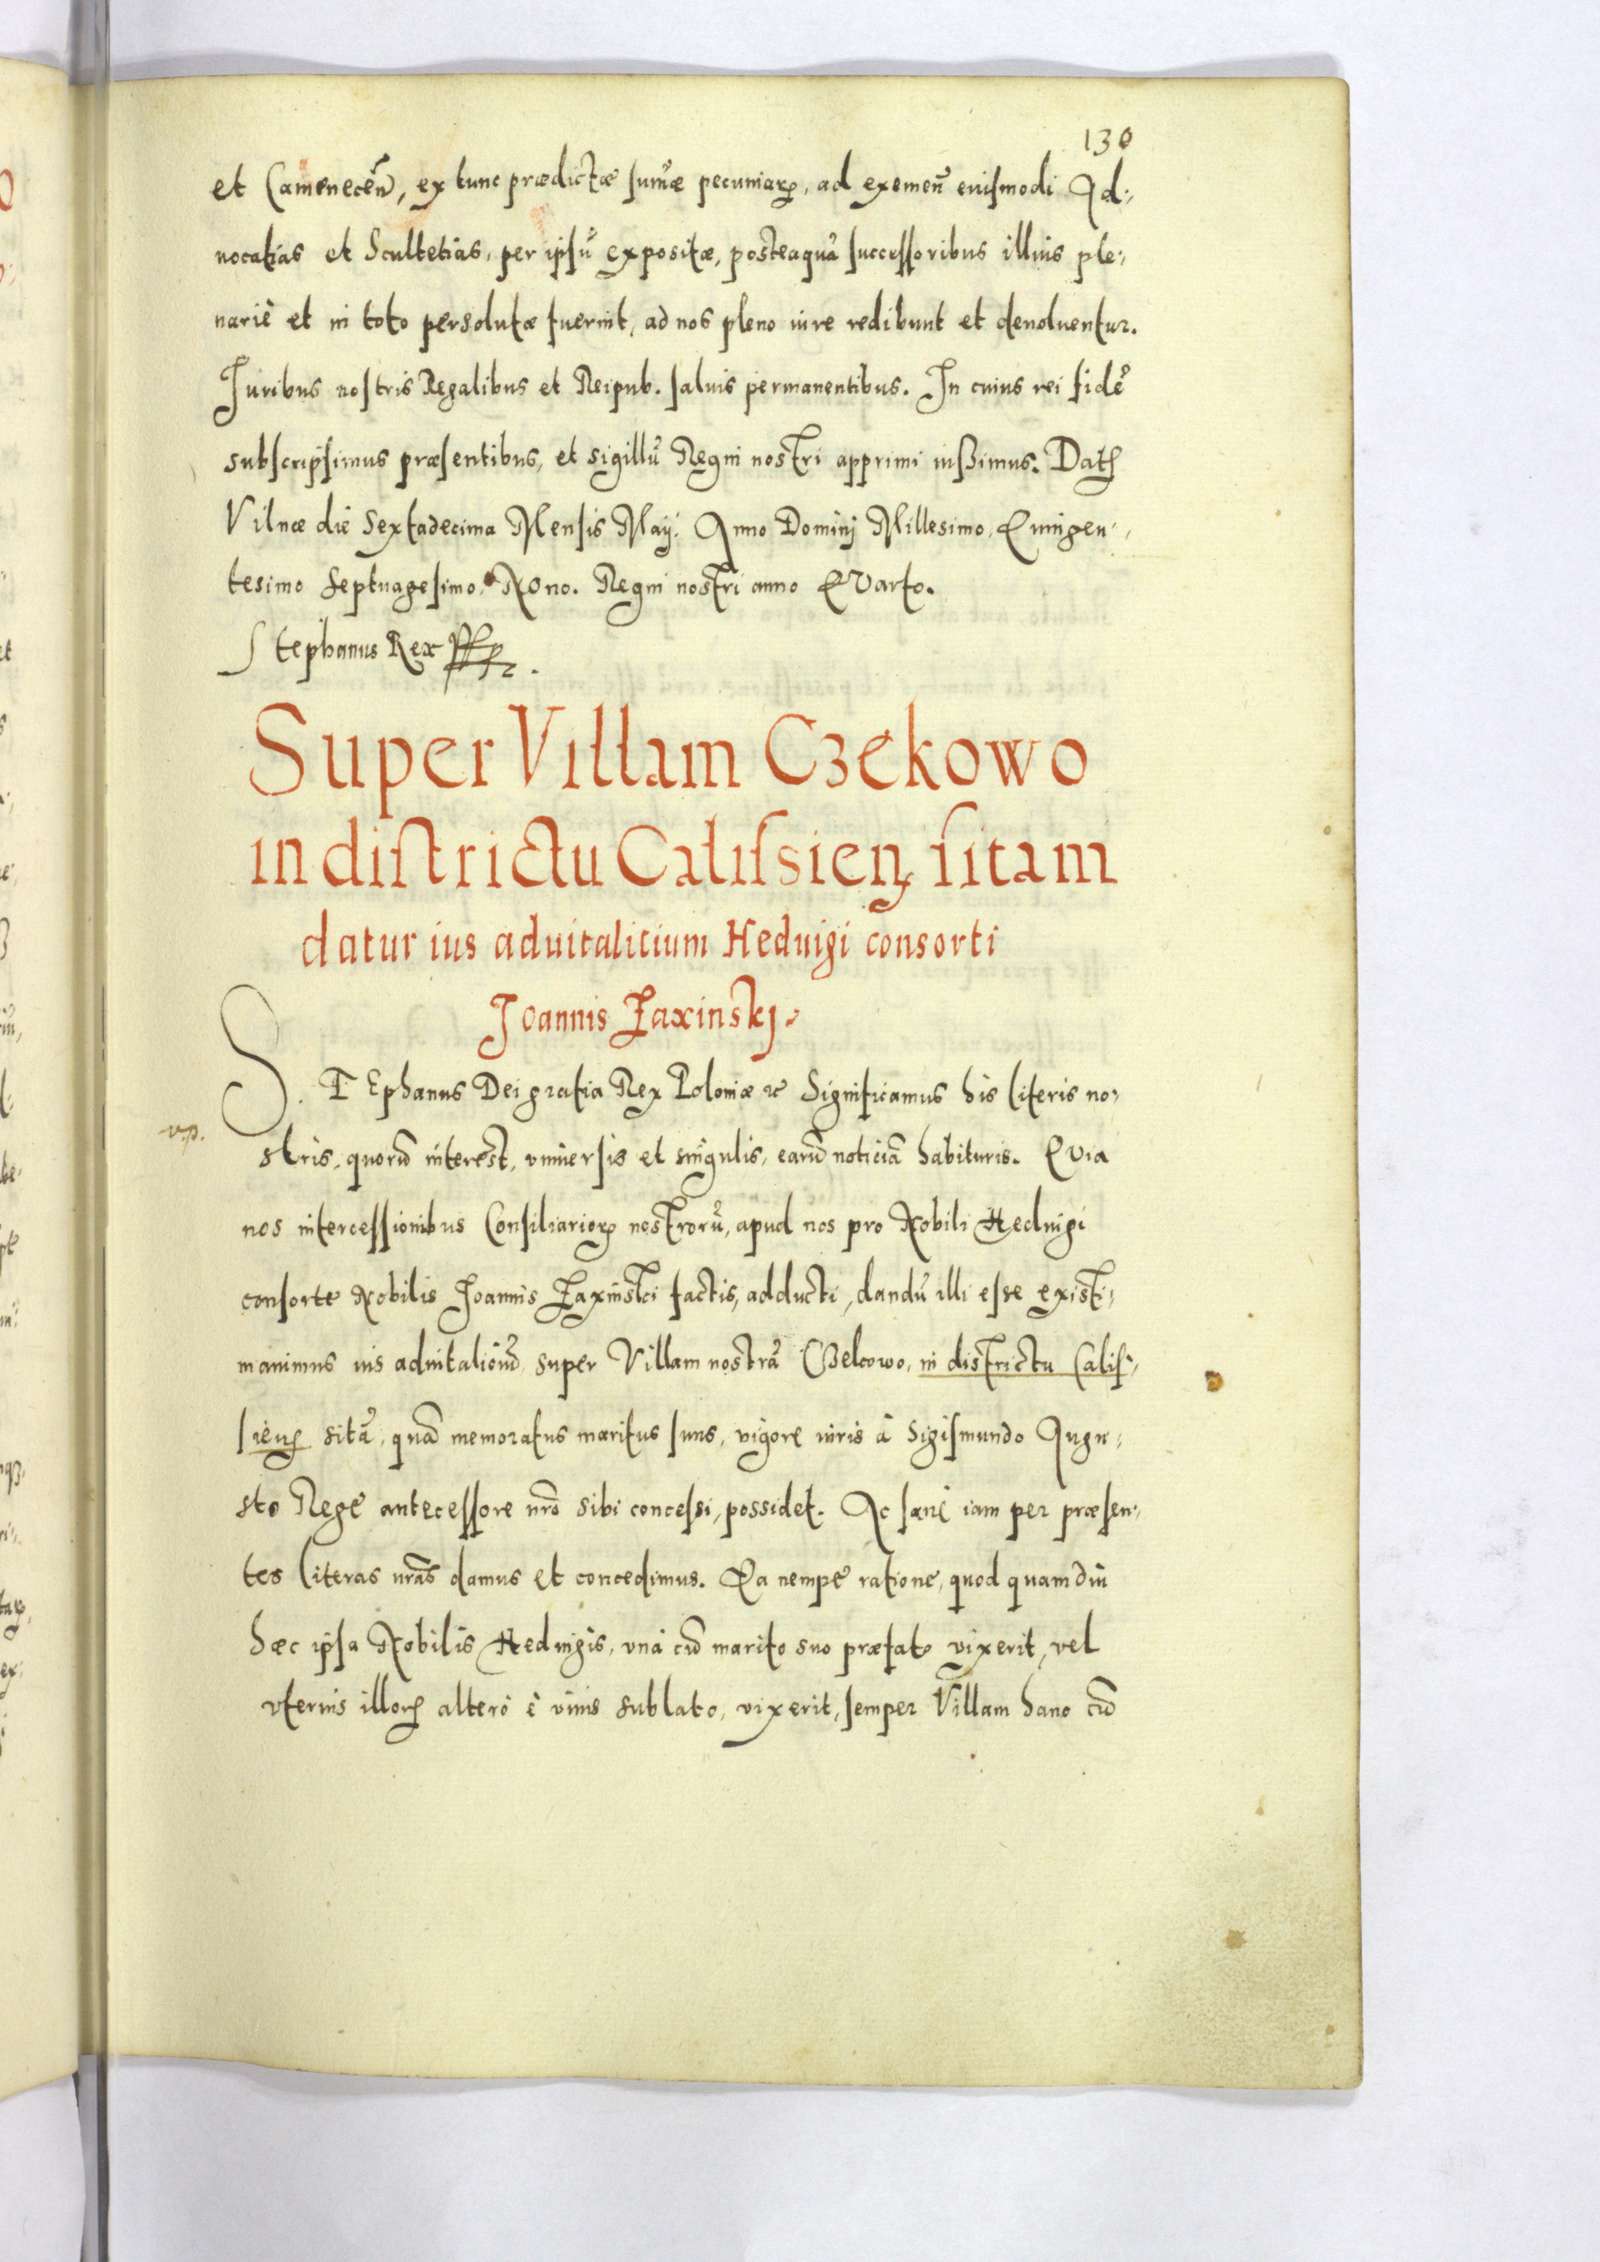 130
et Camenecen̄, ex tunc prædictæ sum̃æ pecuniarꝝ, ad exemen̄ eiusmodi Ad-
uocatias et Scultetias, per ipsũ expositæ, posteaquã successoribus illius ple-
nariè et in toto persolutæ fuerint, ad nos pleno iure redibunt et deuoluentur.
Juribus nostris Regalibus et Reipub. saluis permanentibus. In cuius rei fidẽ
subscripsimus præsentibus, et sigillũ Regni nostri apprimi iussimus. Datꝭ
Vilnæ die Sextadecima Mensis Maij. Anno Dominj Millesimo, Quingen-
tesimo Septuagesimo, Nono. Regni nostri anno QVarto.
Stephanus Rex
Super Villam Czekowo
in districtu Calissienꝭ sitam
datur ius aduitalitium Heduigi consorti
Joannis Laxinskj.
STEphanus Dei gratia Rex Poloniæ ꝛc Significamus his literis no-
v.p.
stris, quorũ interest, vniuersis et singulis, earũ noticiã habituris. QVia
nos intercessionibus Consiliariorꝝ nostrorũ, apud nos pro Nobili Heduigi
consorte Nobilis Joannis Laxinski factis, adducti, dandũ illi esse existi-
mauimus ius aduitaliciũ super Villam nostrã Czelcowo, in districtu Calis-
sienꝭ sitã, quã memoratus maritus suus, vigore iuris à Sigismundo Augu-
sto Rege antecessore nr̃o sibi concessi, possidet. Ac sanè iam per præsen-
tes literas nr̃as damus et concedimus. Ea nempe ratione, quod quamdiu
hæc ipsa Nobilis Heduigis, vnà cũ marito suo præfato vixerit, vel
vteruis illorꝝ altero è viuis sublato, vixerit, semper Villam hanc cũ